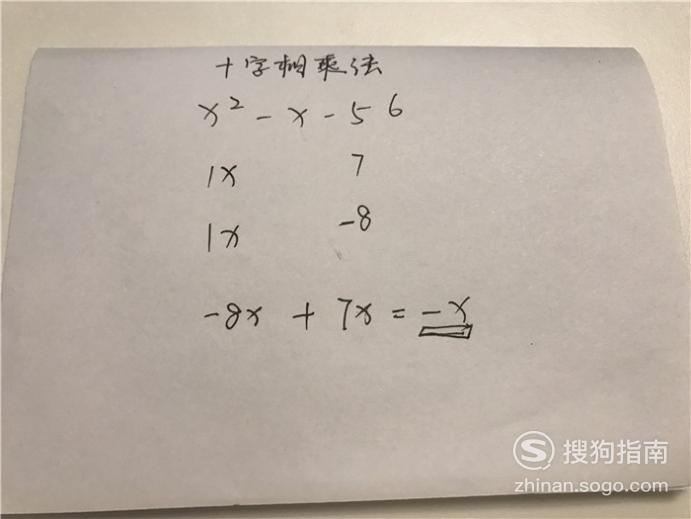 十字相乘法
x² - x - 56
1x 7
1x -8
-8x + 7x = -x
搜狗指南
zhinan.sogo.com